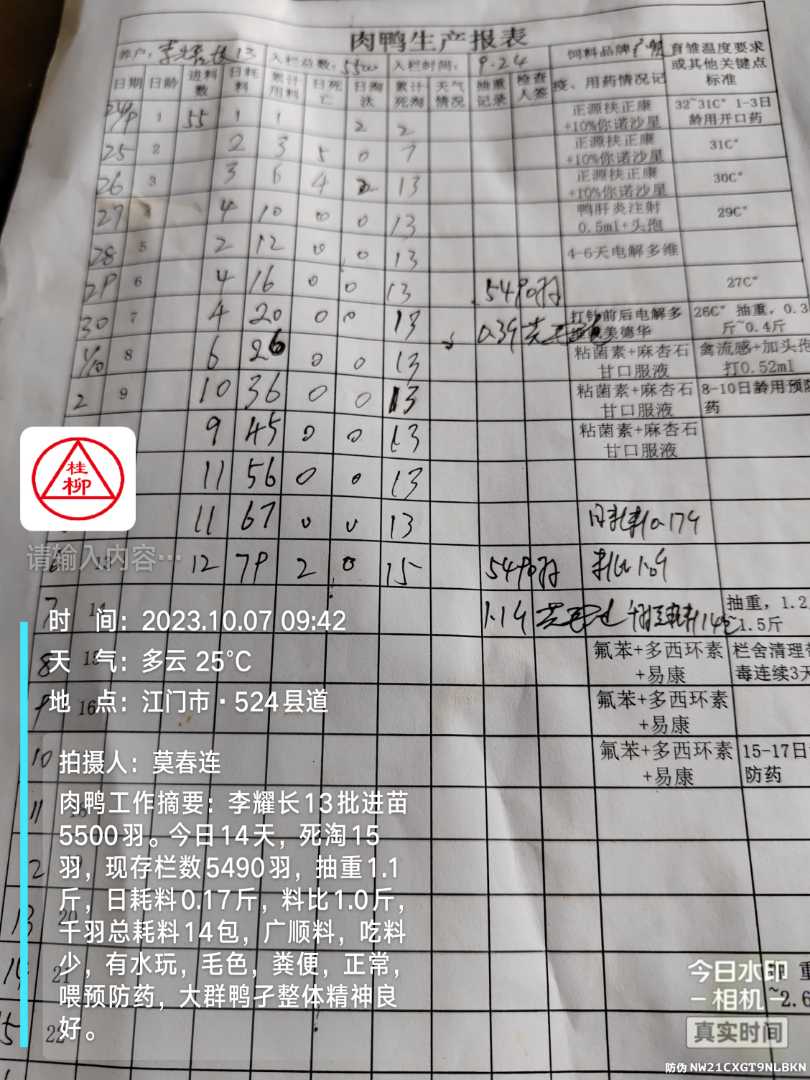 肉鸭生产报表
养户：李耀长13 入栏总数：5500 入栏时间：9.24 饲料品牌广顺 育雏温度要求或其他关键点标准
日期 日龄 进料数 日耗料 累计用料 日死亡 日淘汰 累计死淘 天气情况 抽重记录 检查人签 疫、用药情况记
1 55 1 1 2 2 正源扶正康+10%你诺沙星 32~31C° 1-3日龄用开口药
25 2 2 3 5 0 7 正源扶正康+10%你诺沙星 31C°
26 3 3 6 4 2 13 正源扶正康+10%你诺沙星 30C°
27 4 4 10 0 0 13 鸭肝炎注射0.5ml+头孢 29C°
28 5 2 12 0 0 13 4-6天电解多维
29 6 4 16 0 0 13 5490羽 27C°
30 7 4 20 0 0 13 0.39 打针前后电解多 美德华 26C° 抽重，0.3斤~0.4斤
1/10 8 6 26 0 0 13 粘菌素+麻杏石甘口服液 禽流感+加头孢打0.52ml
2 9 10 36 0 0 13 粘菌素+麻杏石甘口服液 8-10日龄用预防药
9 45 0 0 13 粘菌素+麻杏石甘口服液
11 56 0 0 13
11 67 0 0 13 日耗料0.179
6 12 79 2 0 15 5490羽 料比1.09
7 14 1.19 抽重，1.2~1.5斤
8 15 氟苯+多西环素+易康 栏舍清理 毒连续3天
9 16 氟苯+多西环素+易康
10 氟苯+多西环素+易康 15-17日 防药
11
2
13 20
14 21 重 ~2.6
15 22
桂柳
请输入内容…
时 间：2023.10.07 09:42
天 气：多云 25℃
地 点：江门市·524县道
拍摄人：莫春连
肉鸭工作摘要：李耀长13批进苗
5500羽。今日14天，死淘15
羽，现存栏数5490羽，抽重1.1
斤，日耗料0.17斤，料比1.0斤，
千羽总耗料14包，广顺料，吃料
少，有水玩，毛色，粪便，正常，
喂预防药，大群鸭孑整体精神良
好。
今日水印
相机
真实时间
防伪 NW21CXGT9NLBKN